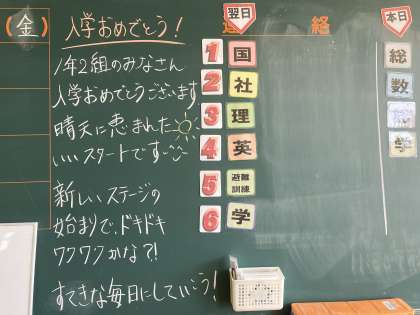 (金)
入学おめでとう!
1年2組のみなさん
入学おめでとうございます
晴天に恵まれた
いいスタートです
新しいステージの
始まりで、ドキドキ
ワクワクかな?!
すてきな毎日にしていこう!
翌日
連絡
1 国
2 社
3 理
4 英
5 避難訓練
6 学
本日
総
数
学